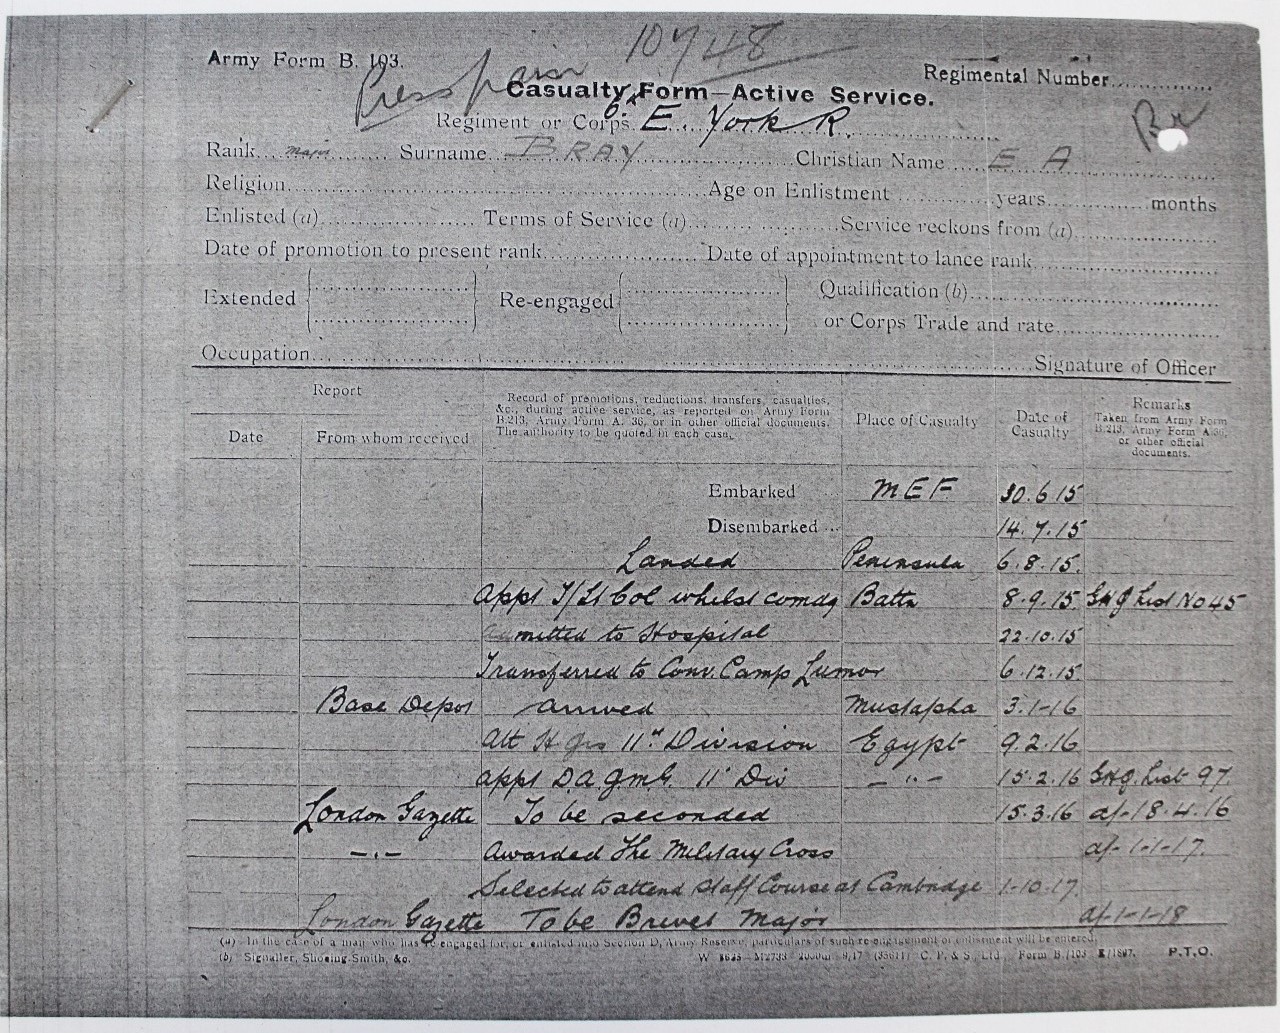 10748
Army Form B. 103.
Regimental Number
Press
Casualty Form—Active Service.
Br
Regiment or Corps 6th E. York R.
Rank Major Surname BRAY Christian Name E A
Religion Age on Enlistment years months
Enlisted (a) Terms of Service (a) Service reckons from (a)
Date of promotion to present rank Date of appointment to lance rank
Extended Re-engaged Qualification (b)
or Corps Trade and rate
Occupation Signature of Officer
Report
Date From whom received
Record of promotions, reductions, transfers, casualties,
&c., during active service, as reported on Army Form
B.213, Army Form A. 36, or in other official documents.
The authority to be quoted in each case.
Place of Casualty
Date of
Casualty
Remarks
Taken from Army Form
B.213, Army Form A.36,
or other official
documents.
Embarked MEF 30.6.15
Disembarked 14.7.15
Landed Peninsula 6.8.15.
Appt T/Lt Col whilst comdg Battn 8.9.15 GHQ List No 45
Admitted to Hospital 22.10.15
Transferred to Conv. Camp Luxor 6.12.15
Base Depot arrived Mustapha 3.1-16
Att H Qrs 11th Division Egypt 9.2.16
appt D.A.Q.M.G. 11th Div — " — 15.2.16 GHQ. List 97
London Gazette To be seconded 15.3.16 a/- 18.4.16
— " — Awarded The Military Cross a/- 1-1-17.
Selected to attend Staff Course at Cambridge 1-10-17.
London Gazette To be Brevet Major a/- 1-1-18
(a) In the case of a man who has re-engaged for, or enlisted into Section D, Army Reserve, particulars of such re-engagement or enlistment will be entered.
(b) Signaller, Shoeing-Smith, &c.
C. P. & S., Ltd., Form B./103 P.T.O.